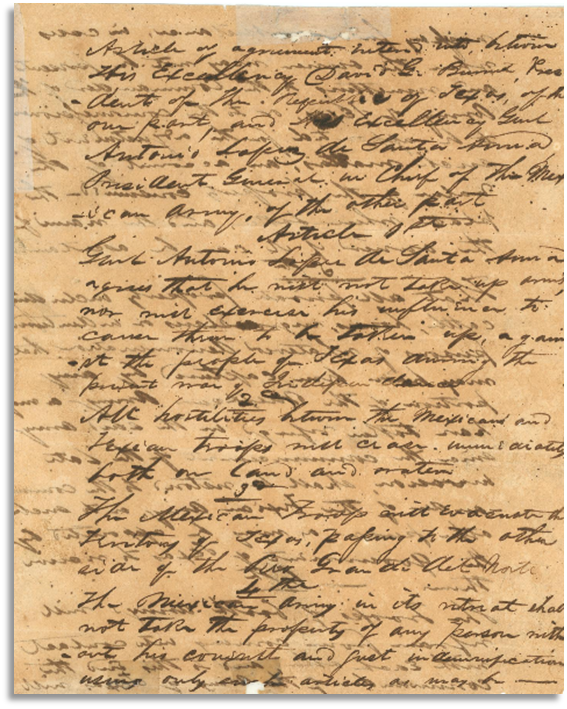 Article of agreement entered into between
His Excellency David G. Burnet Presi
-dent of the Republic of Texas, of the
one part, and His Excellency Genl
Antonio Lopez de Santa Anna
President General in Chief of the Mex
-ican Army, of the other part
Article 1st
Genl Antonio Lopez de Santa Anna
agrees that he will not take up arms
nor will exercise his influence to
cause them to be taken up, again
-st the people of Texas during the
present war of Independence
2
All hostilities between the Mexican and
Texian troops will cease immediately
both on land and water
3
The Mexican Troops will evacuate the
Territory of Texas, passing to the other
side of the Rio Grande del Norte
4th
The Mexican Army in its retreat shall
not take the property of any person with
-out his consent and just indemnification
using only such articles as may be